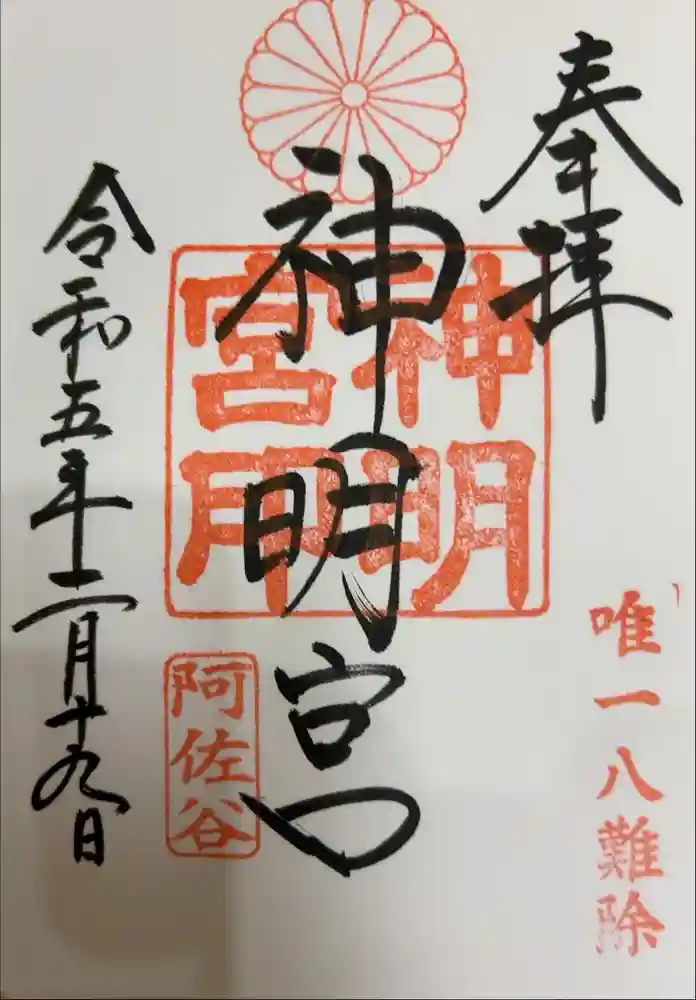 奉拝
唯一八難除
神明宮
神明
宮印
阿佐谷
令和五年二月十九日